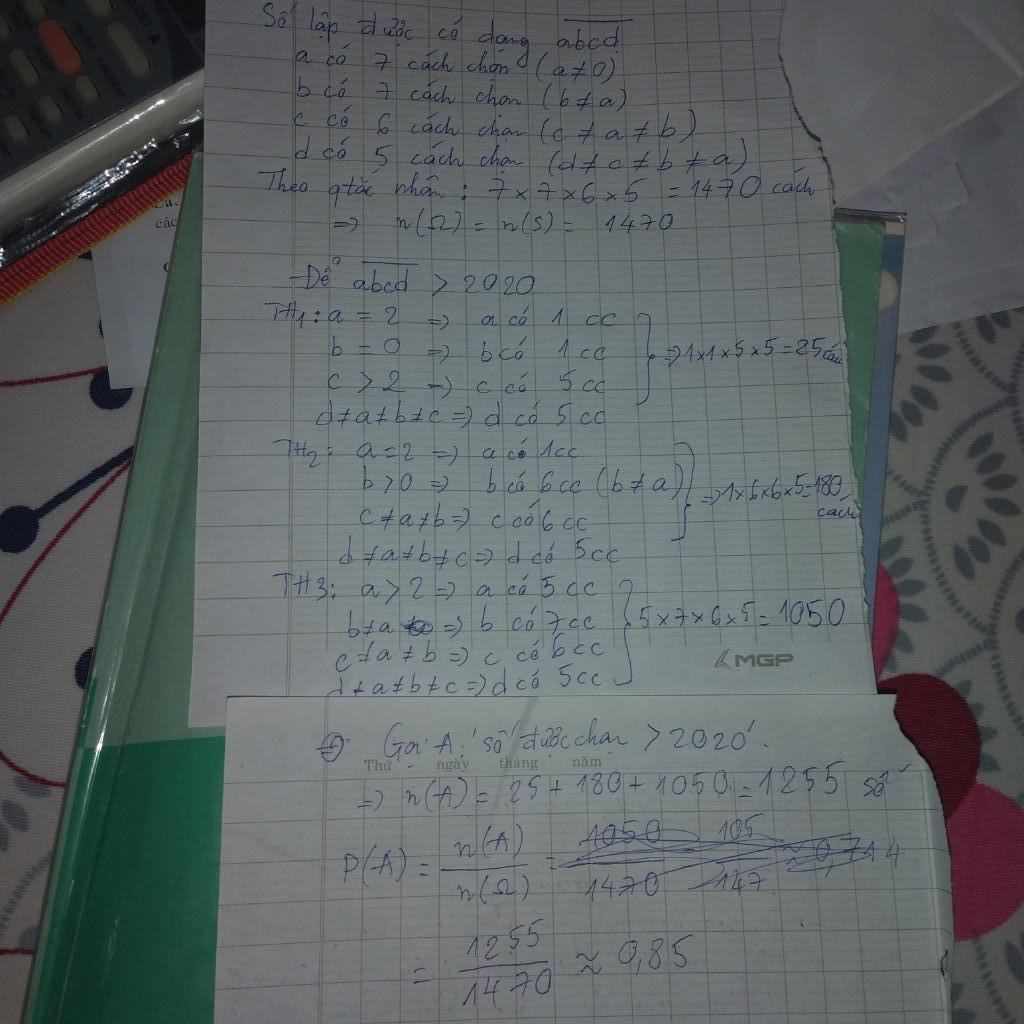 Số lập được có dạng abcd
a có 7 cách chọn (a ≠ 0)
b có 7 cách chọn (b ≠ a)
c có 6 cách chọn (c ≠ a ≠ b)
d có 5 cách chọn (d ≠ c ≠ b ≠ a)
Theo qtắc nhân: 7 × 7 × 6 × 5 = 1470 cách
=> n(Ω) = n(S) = 1470
Để abcd > 2020
TH1: a = 2 => a có 1 cc
b = 0 => b có 1 cc
=> 1×1×5×5 = 25 cách
c > 2 => c có 5 cc
d ≠ a ≠ b ≠ c => d có 5 cc
TH2: a = 2 => a có 1cc
b > 0 => b có 6cc (b ≠ a)
=> 1×6×6×5 = 180
cách
c ≠ a ≠ b => c có 6 cc
d ≠ a ≠ b ≠ c => d có 5cc
TH3: a > 2 => a có 5 cc
b ≠ a => b có 7cc
5 × 7 × 6 × 5 = 1050
c ≠ a ≠ b => c có 6cc
d ≠ a ≠ b ≠ c => d có 5cc
MGP
Gọi A: số được chọn > 2020
Thứ ngày tháng năm
=> n(A) = 25 + 180 + 1050 = 1255 số
P(A) = n(A)/n(Ω) = 1050/1470 105/147 ≈ 0,714
= 1255/1470 ≈ 0,85